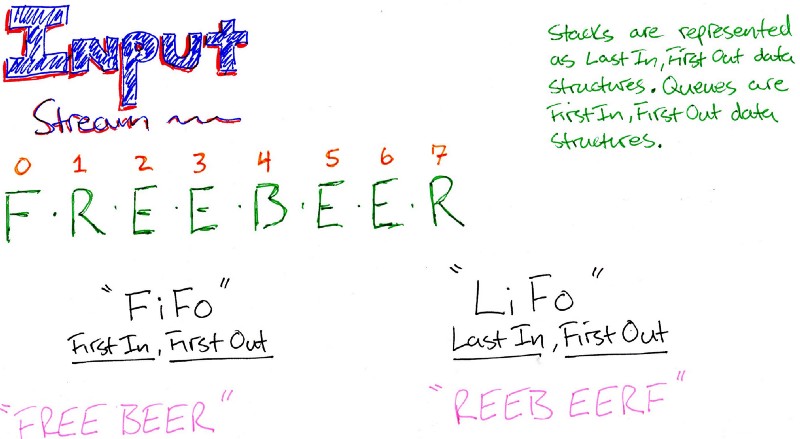 Input
Stream
Stacks are represented
as Last In, First Out data
structures. Queues are
First In, First Out data
structures.
0 1 2 3 4 5 6 7
F·R·E·E·B·E·E·R
"FiFo"
First In, First Out
"FREE BEER"
"LiFo"
Last In, First Out
"REEB EERF"